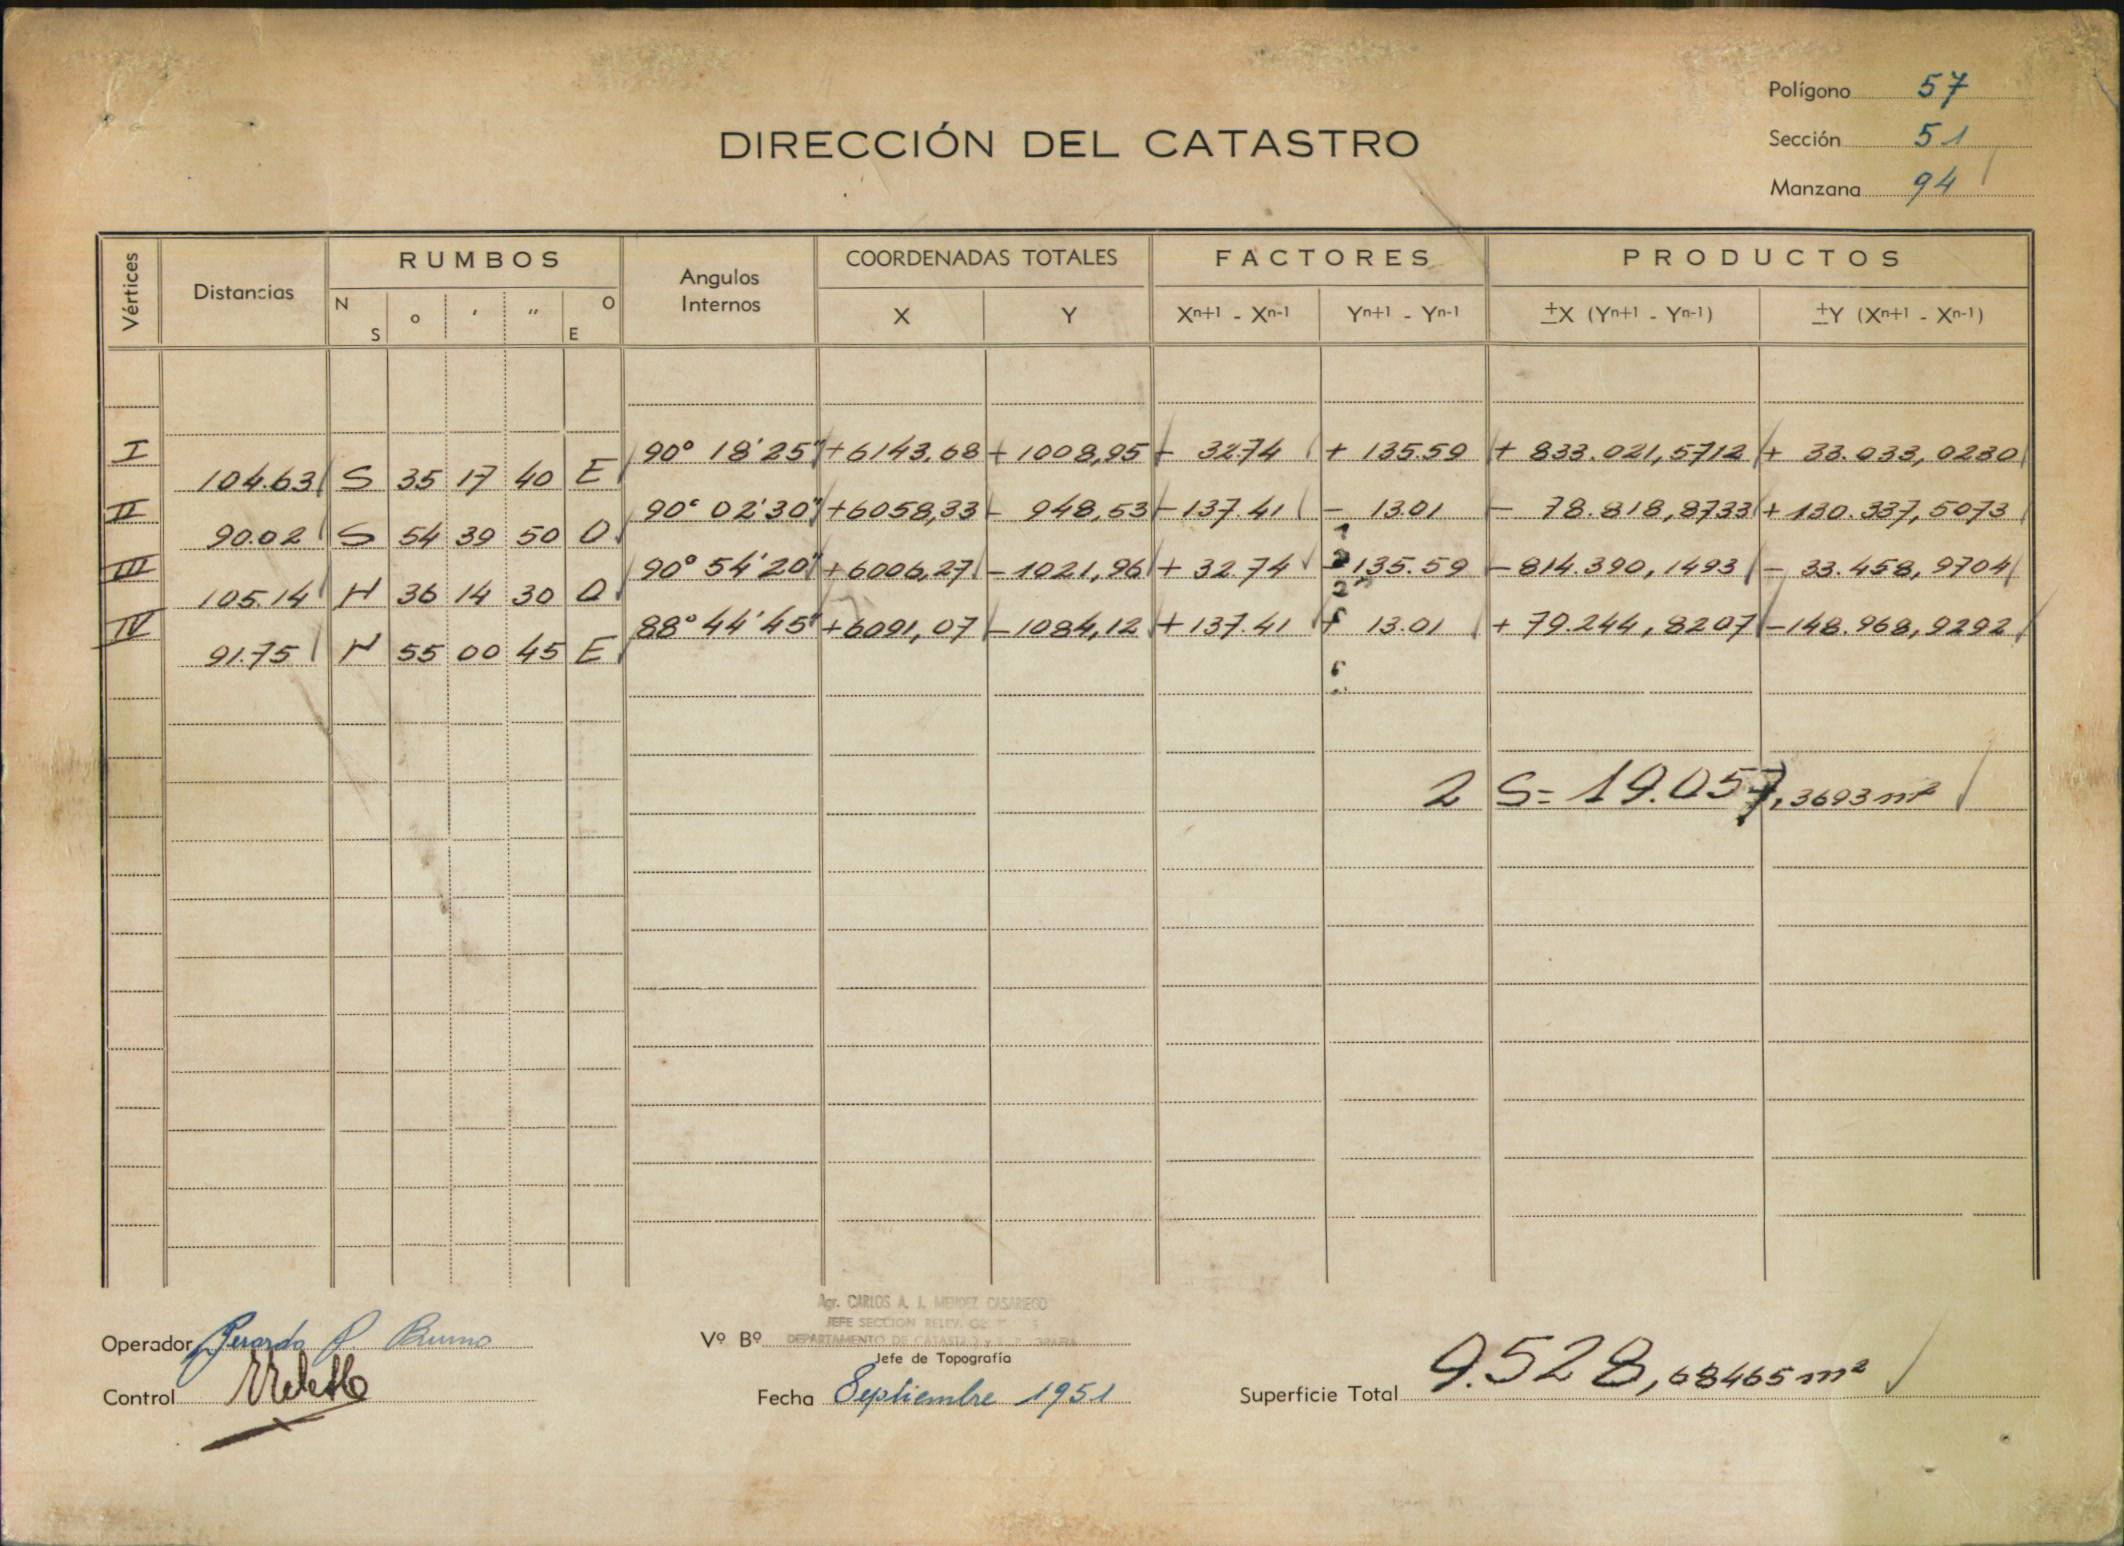 Polígono 57
DIRECCIÓN DEL CATASTRO
Sección 51
Manzana 94
Vértices Distancias RUMBOS Angulos Internos COORDENADAS TOTALES FACTORES PRODUCTOS
N S o ' '' O E X Y Xn+1 - Xn-1 Yn+1 - Yn-1 ±X (Yn+1 - Yn-1) ±Y (Xn+1 - Xn-1)
I 90° 18' 25" +6143,68 + 1008,95 + 32.74 + 135.59 + 833.021,5712 + 33.033,0230
104.63 S 35 17 40 E
II 90° 02' 30" +6058,33 - 948,53 -137.41 - 13.01 - 78.818,8733 + 130.337,5073
90.02 S 54 39 50 O
III 90° 54' 20" +6006,27 -1021,96 + 32.74 -135.59 -814.390,1493 - 33.458,9704
105.14 N 36 14 30 O
IV 88° 44' 45" +6091,07 -1084,12 +137.41 + 13.01 + 79.244,8207 -148.968,9292
91.75 N 55 00 45 E
2 S= 19.057,3693 m²
Agr. CARLOS A. J. MENDEZ CASARIEGO
JEFE SECCION RELEV.
Operador Gerardo P. Bruno Vº Bº DEPARTAMENTO DE CATASTRO y
Jefe de Topografía
Control Fecha Septiembre 1951 Superficie Total 9.528,68465 m²